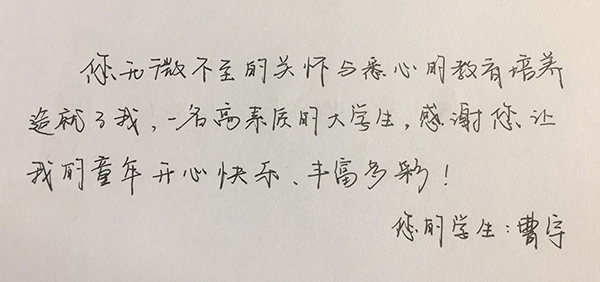 您无微不至的关怀与悉心的教育培养
造就了我，一名高素质的大学生，感谢您让
我的童年开心快乐、丰富多彩！
您的学生：曹宇